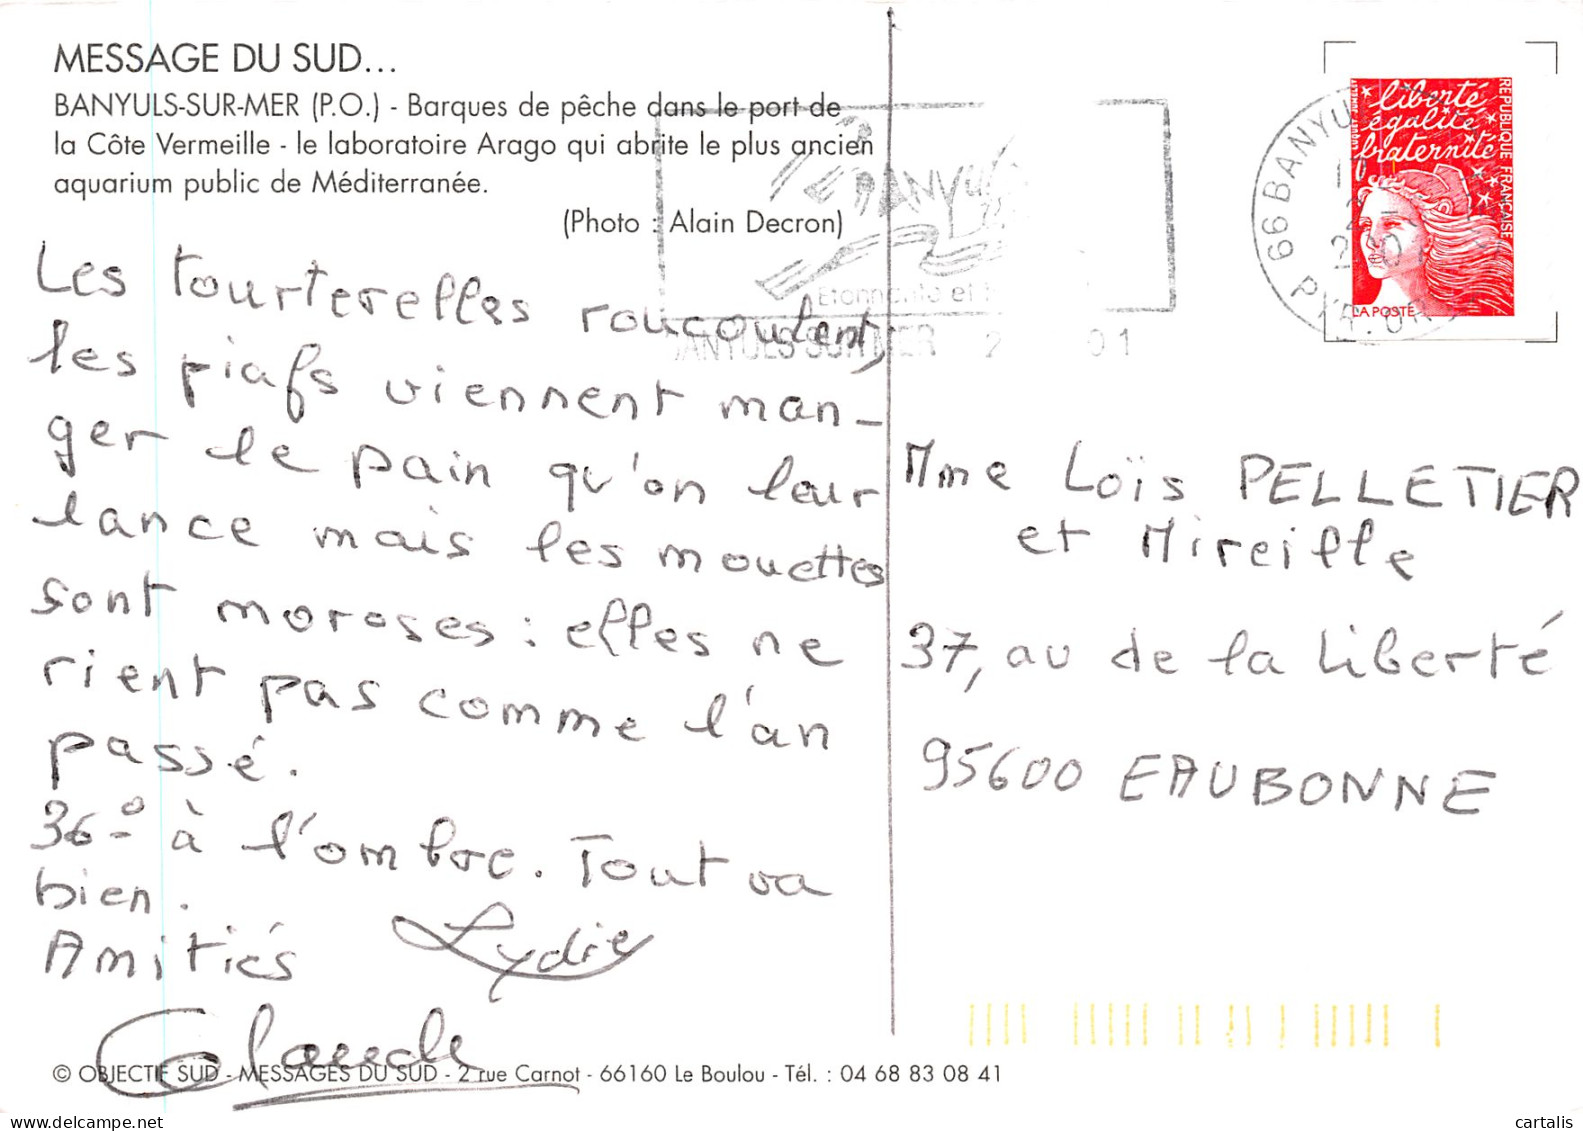 MESSAGE DU SUD...
BANYULS-SUR-MER (P.O.) - Barques de pêche dans le port de
la Côte Vermeille - le laboratoire Arago qui abrite le plus ancien
aquarium public de Méditerranée.
(Photo : Alain Decron)
Les tourterelles roucoulent,
les piafs viennent man-
ger le pain qu'on leur
lance mais les mouettes
sont moroses : elles ne
rient pas comme l'an
passé.
36° à l'ombre. Tout va
bien.
Amitiés Lydie
Claude
© OBJECTIF SUD - MESSAGES DU SUD - 2 rue Carnot - 66160 Le Boulou - Tél. : 04 68 83 08 41
BANYULS
Etonnante et
BANYULS SUR MER 2 01
66 BANYU
PYR. OR
liberté
égalité
fraternité
REPUBLIQUE FRANÇAISE
LA POSTE
Mme Loïs PELLETIER
et Mireille
37, av de la Liberté
95600 EAUBONNE
cartalis